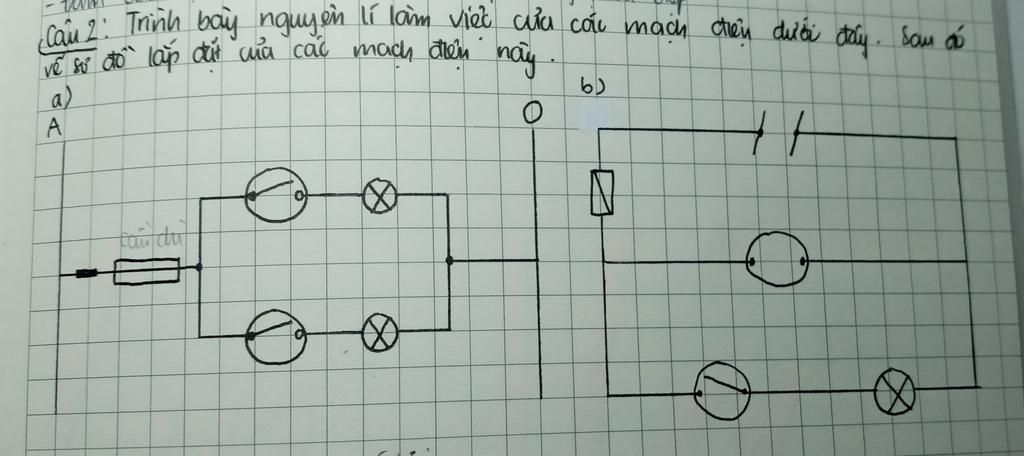 Câu 2: Trình bày nguyên lí làm việc của các mạch điện dưới đây. Sau đó
vẽ sơ đồ lắp đặt của các mạch điện này.
a)
b)
A
O
cầu chì